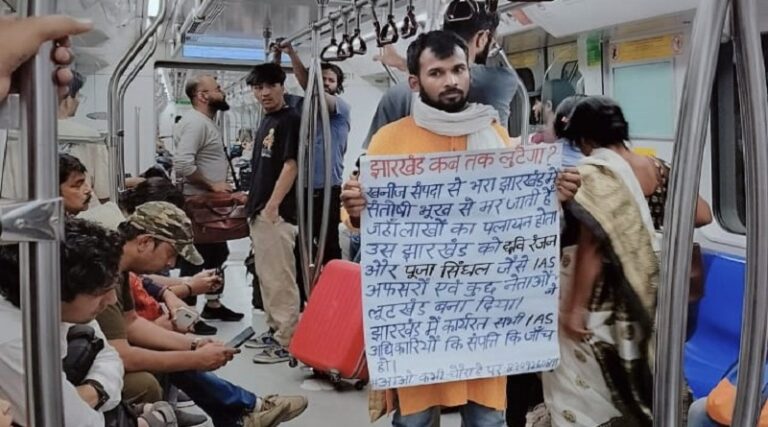 झारखंड कब तक लुटेगा?
खनीज संपदा से भरा झारखंड में
संतोषी भूख से मर जाती है
जहाँ लाखों का पलायन होता
उस झारखंड को छवि रंजन
और पूजा सिंघल जैसे IAS
अफसरों एवं कुछ नेताओं ने
लूटखंड बना दिया।
झारखंड में कार्यरत सभी IAS
अधिकारियों कि संपत्ति कि जाँच
हो।